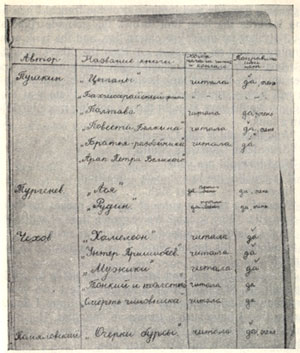 Автор Название книги
Пушкин „Цыганы" читала да, очень
„Бахчисарайский фонтан" " "
„Полтава" читала да, очень
„Повести Белкина" читала да, очень
„Братья-разбойники" читала да
„Арап Петра Великого"
Тургенев „Ася" да, очень
„Рудин" да, очень
Чехов „Хамелеон" читала да
„Унтер Пришибеев" читала да
„Мужики" читала да
„Тонкий и толстый" читала да
„Смерть чиновника" читала да
Помяловский „Очерки бурсы" читала да, очень